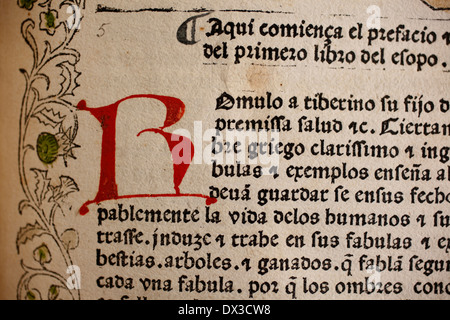 5
¶ Aqui comiença el prefacio ⁊
del primero libro del esopo.
R
Romulo a tiberino su fijo d
premissa salud ⁊c. Ciertam
bre griego clarissimo ⁊ ing
bulas ⁊ exemplos enseña a
deuã guardar se ensus fech
pablemente la vida delos humanos ⁊ su
trasse. induze ⁊ trahe en sus fabulas ⁊ e
bestias. arboles. ⁊ ganados. q̃ fablã segu
cada vna fabula. por q̃ los ombres cono
alamy
Image ID: DX3CW8
www.alamy.com